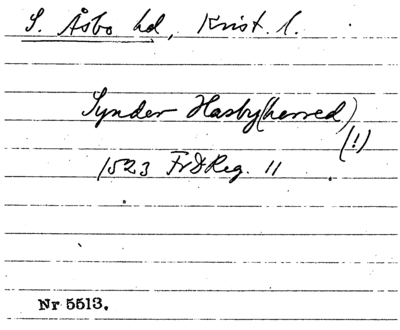 S. Åsbo hd, Krist. l.
Synder Hasby(herred)
(!)
1523 FrdReg. 11
Nr 5513.